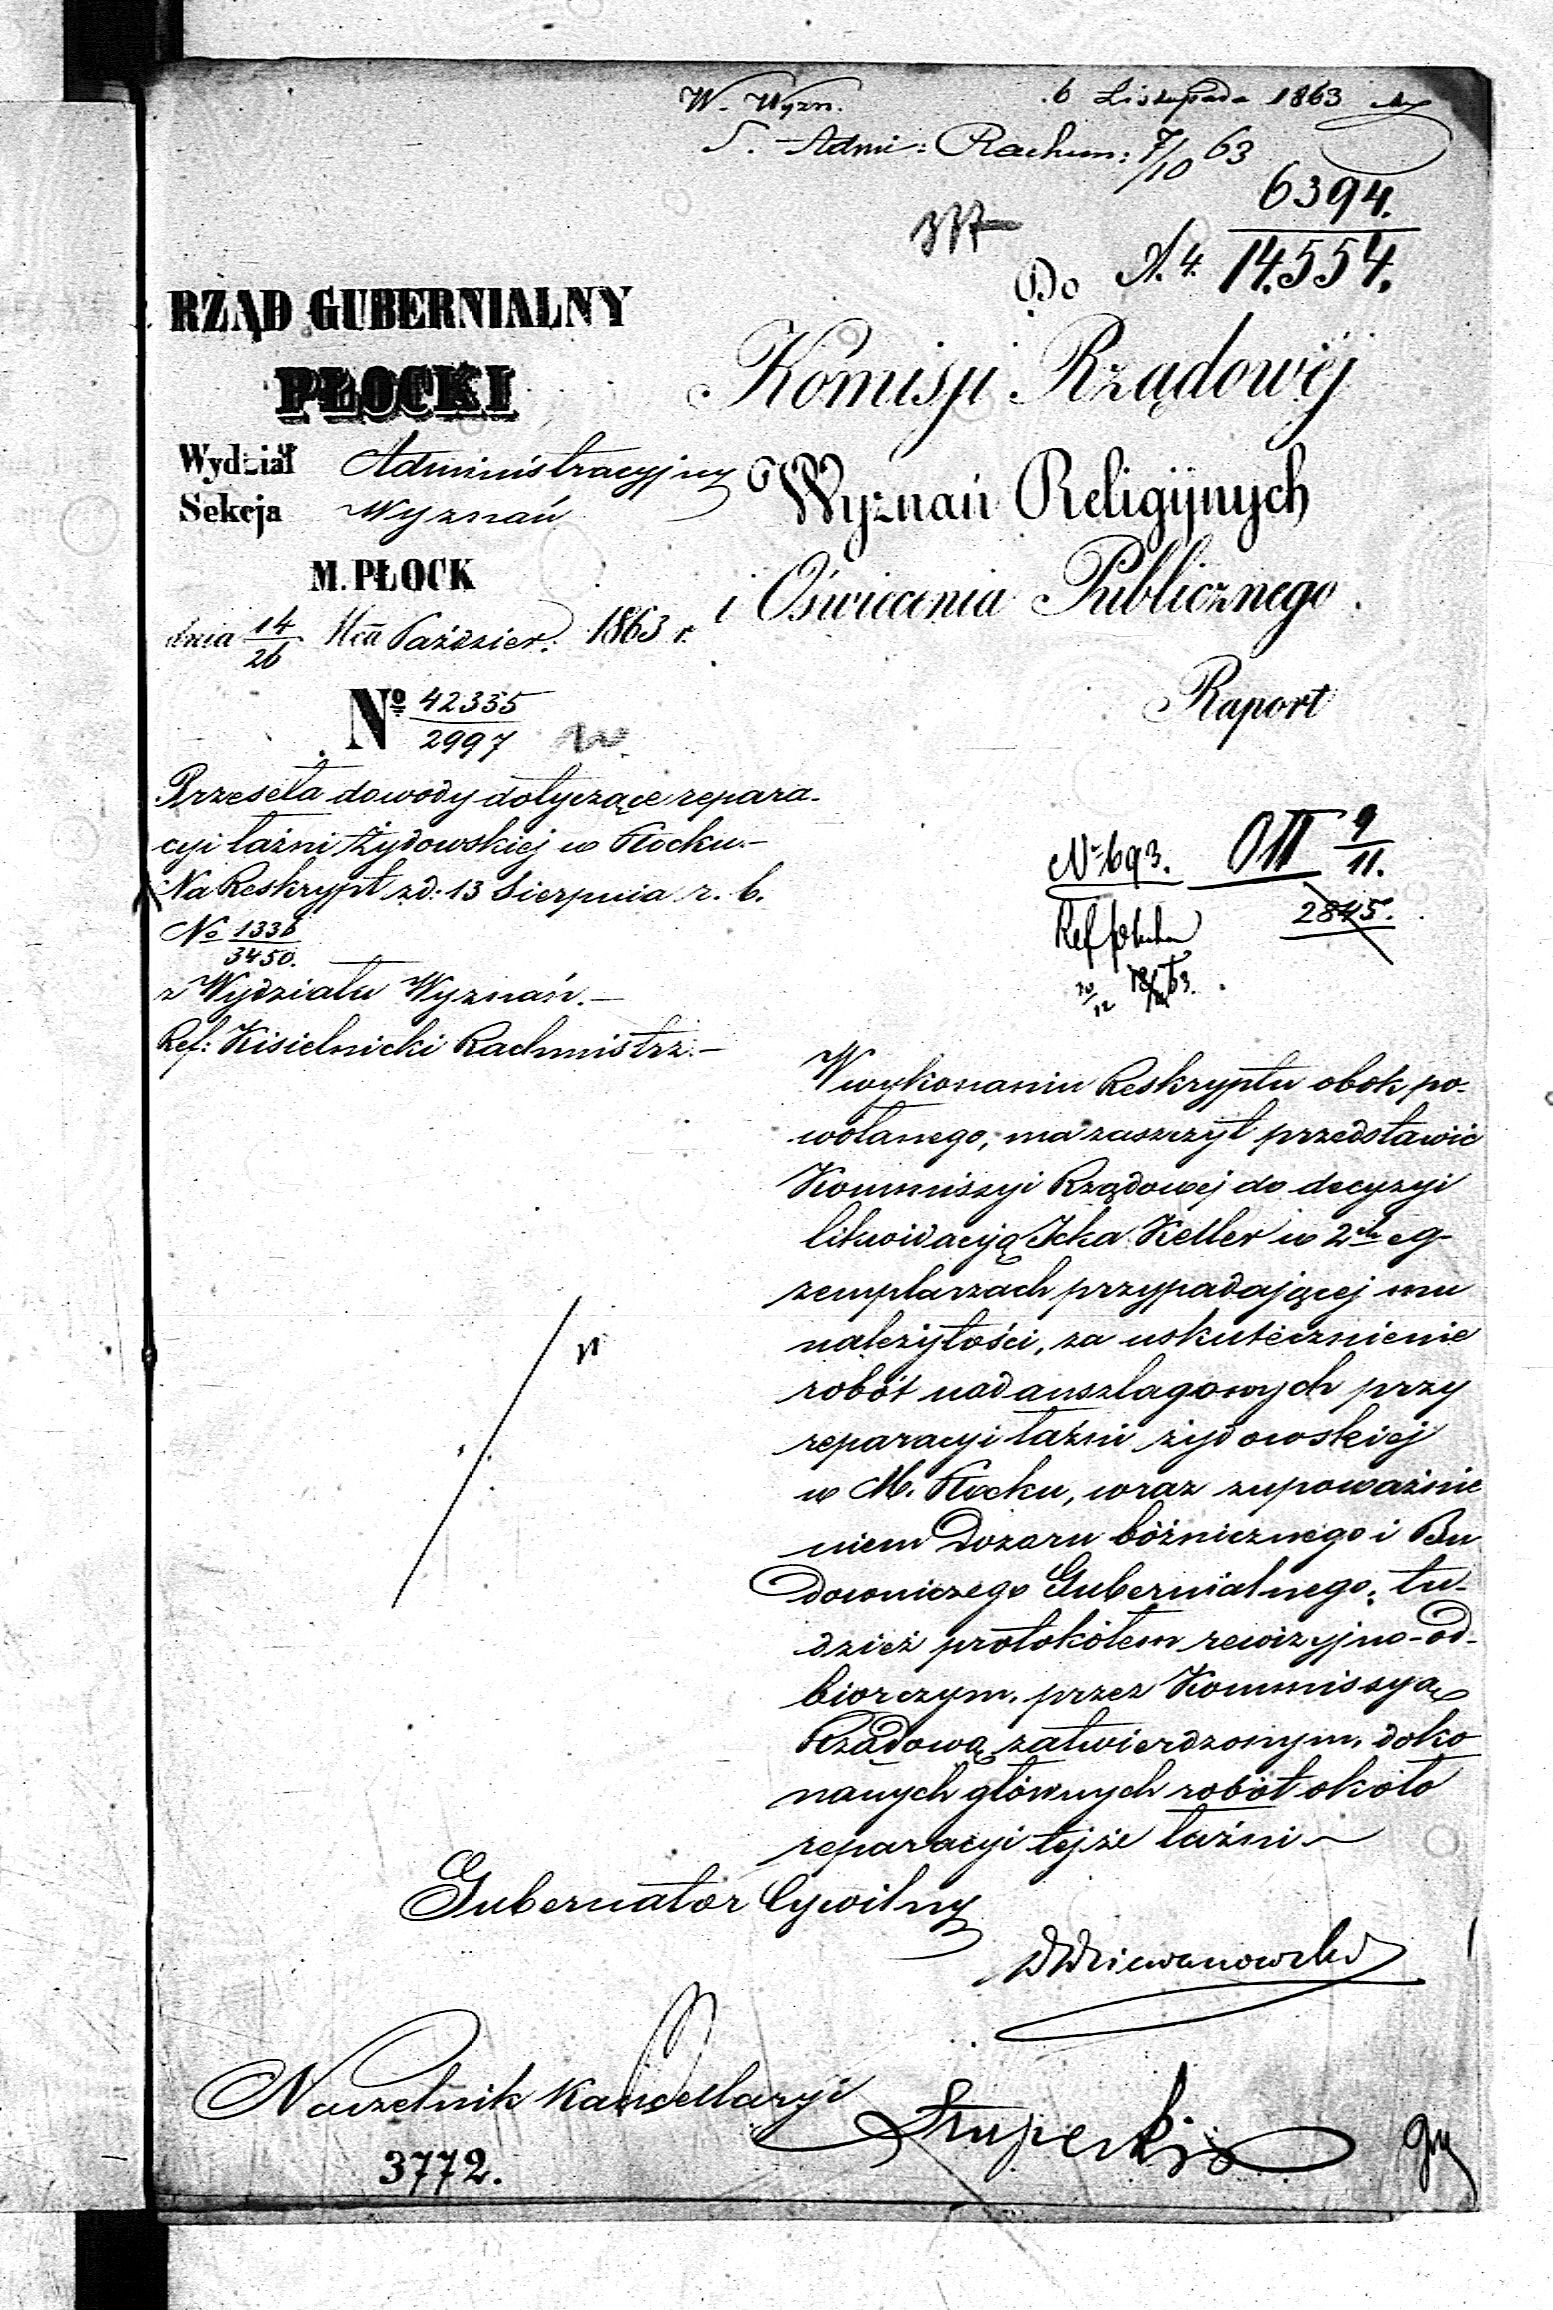 W. Wyzn. 6 Listopada 1863
S. Admi: Rachun: 7/10 63
6394.
Do A. 4. 14.554.
RZĄD GUBERNIALNY
PŁOCKI
Wydział Administracyjny
Sekcja Wyznań
M. PŁOCK
dnia 14/26 Mca Paździer. 1863 r.
No 42335/2997
Przeseła dowody dotyczące repara-
cyi łaźni Żydowskiej w Płocku.—
Na Reskrypt zd: 13 Sierpnia r. b.
No 1336/3450.
z Wydziału Wyznań.—
Ref: Kisielnicki Rachmistrz.—
Komisji Rządowéj
Wyznań Religijnych
i Oświecenia Publicznego.
Raport
No 693. 9/11.
2845.
Ref
W wykonaniu Reskryptu obok po-
wołanego, ma zaszczyt przedstawić
Kommissyi Rządowej do decyzyi
likwidacyją Icka Keller w 2ch eg-
zemplarzach przypadającej mu
należytości, za uskutecznienie
robót nadanszlagowych przy
reparacyi łaźni żydowskiej
w M. Płocku, wraz zupoważnie
niem Dozoru bóżnicznego i Bu
downiczego Gubernialnego; tu-
dzież protokółem rewizyjno-od-
biorczym, przez Kommissyą
Rządową zatwierdzonym, doko
nanych głównych robót około
reparacyi tejże łaźni—
Gubernator Cywilny
Naczelnik Kancellaryi
3772.